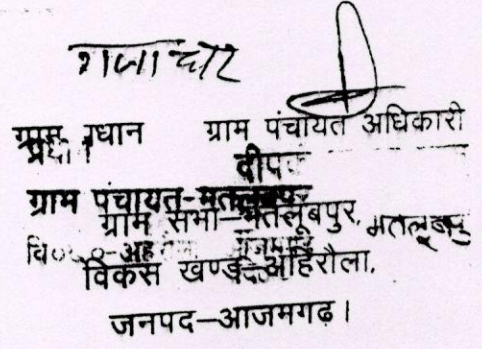 ग्राम प्रधान ग्राम पंचायत अधिकारी
प्रधान
दीप
ग्राम पंचायत-मतलूबपुर
ग्राम सभा–मतलूबपुर, मतलूबपुर
वि०ख०-अह
विकास खण्ड–अहिरौला,
जनपद–आजमगढ़।